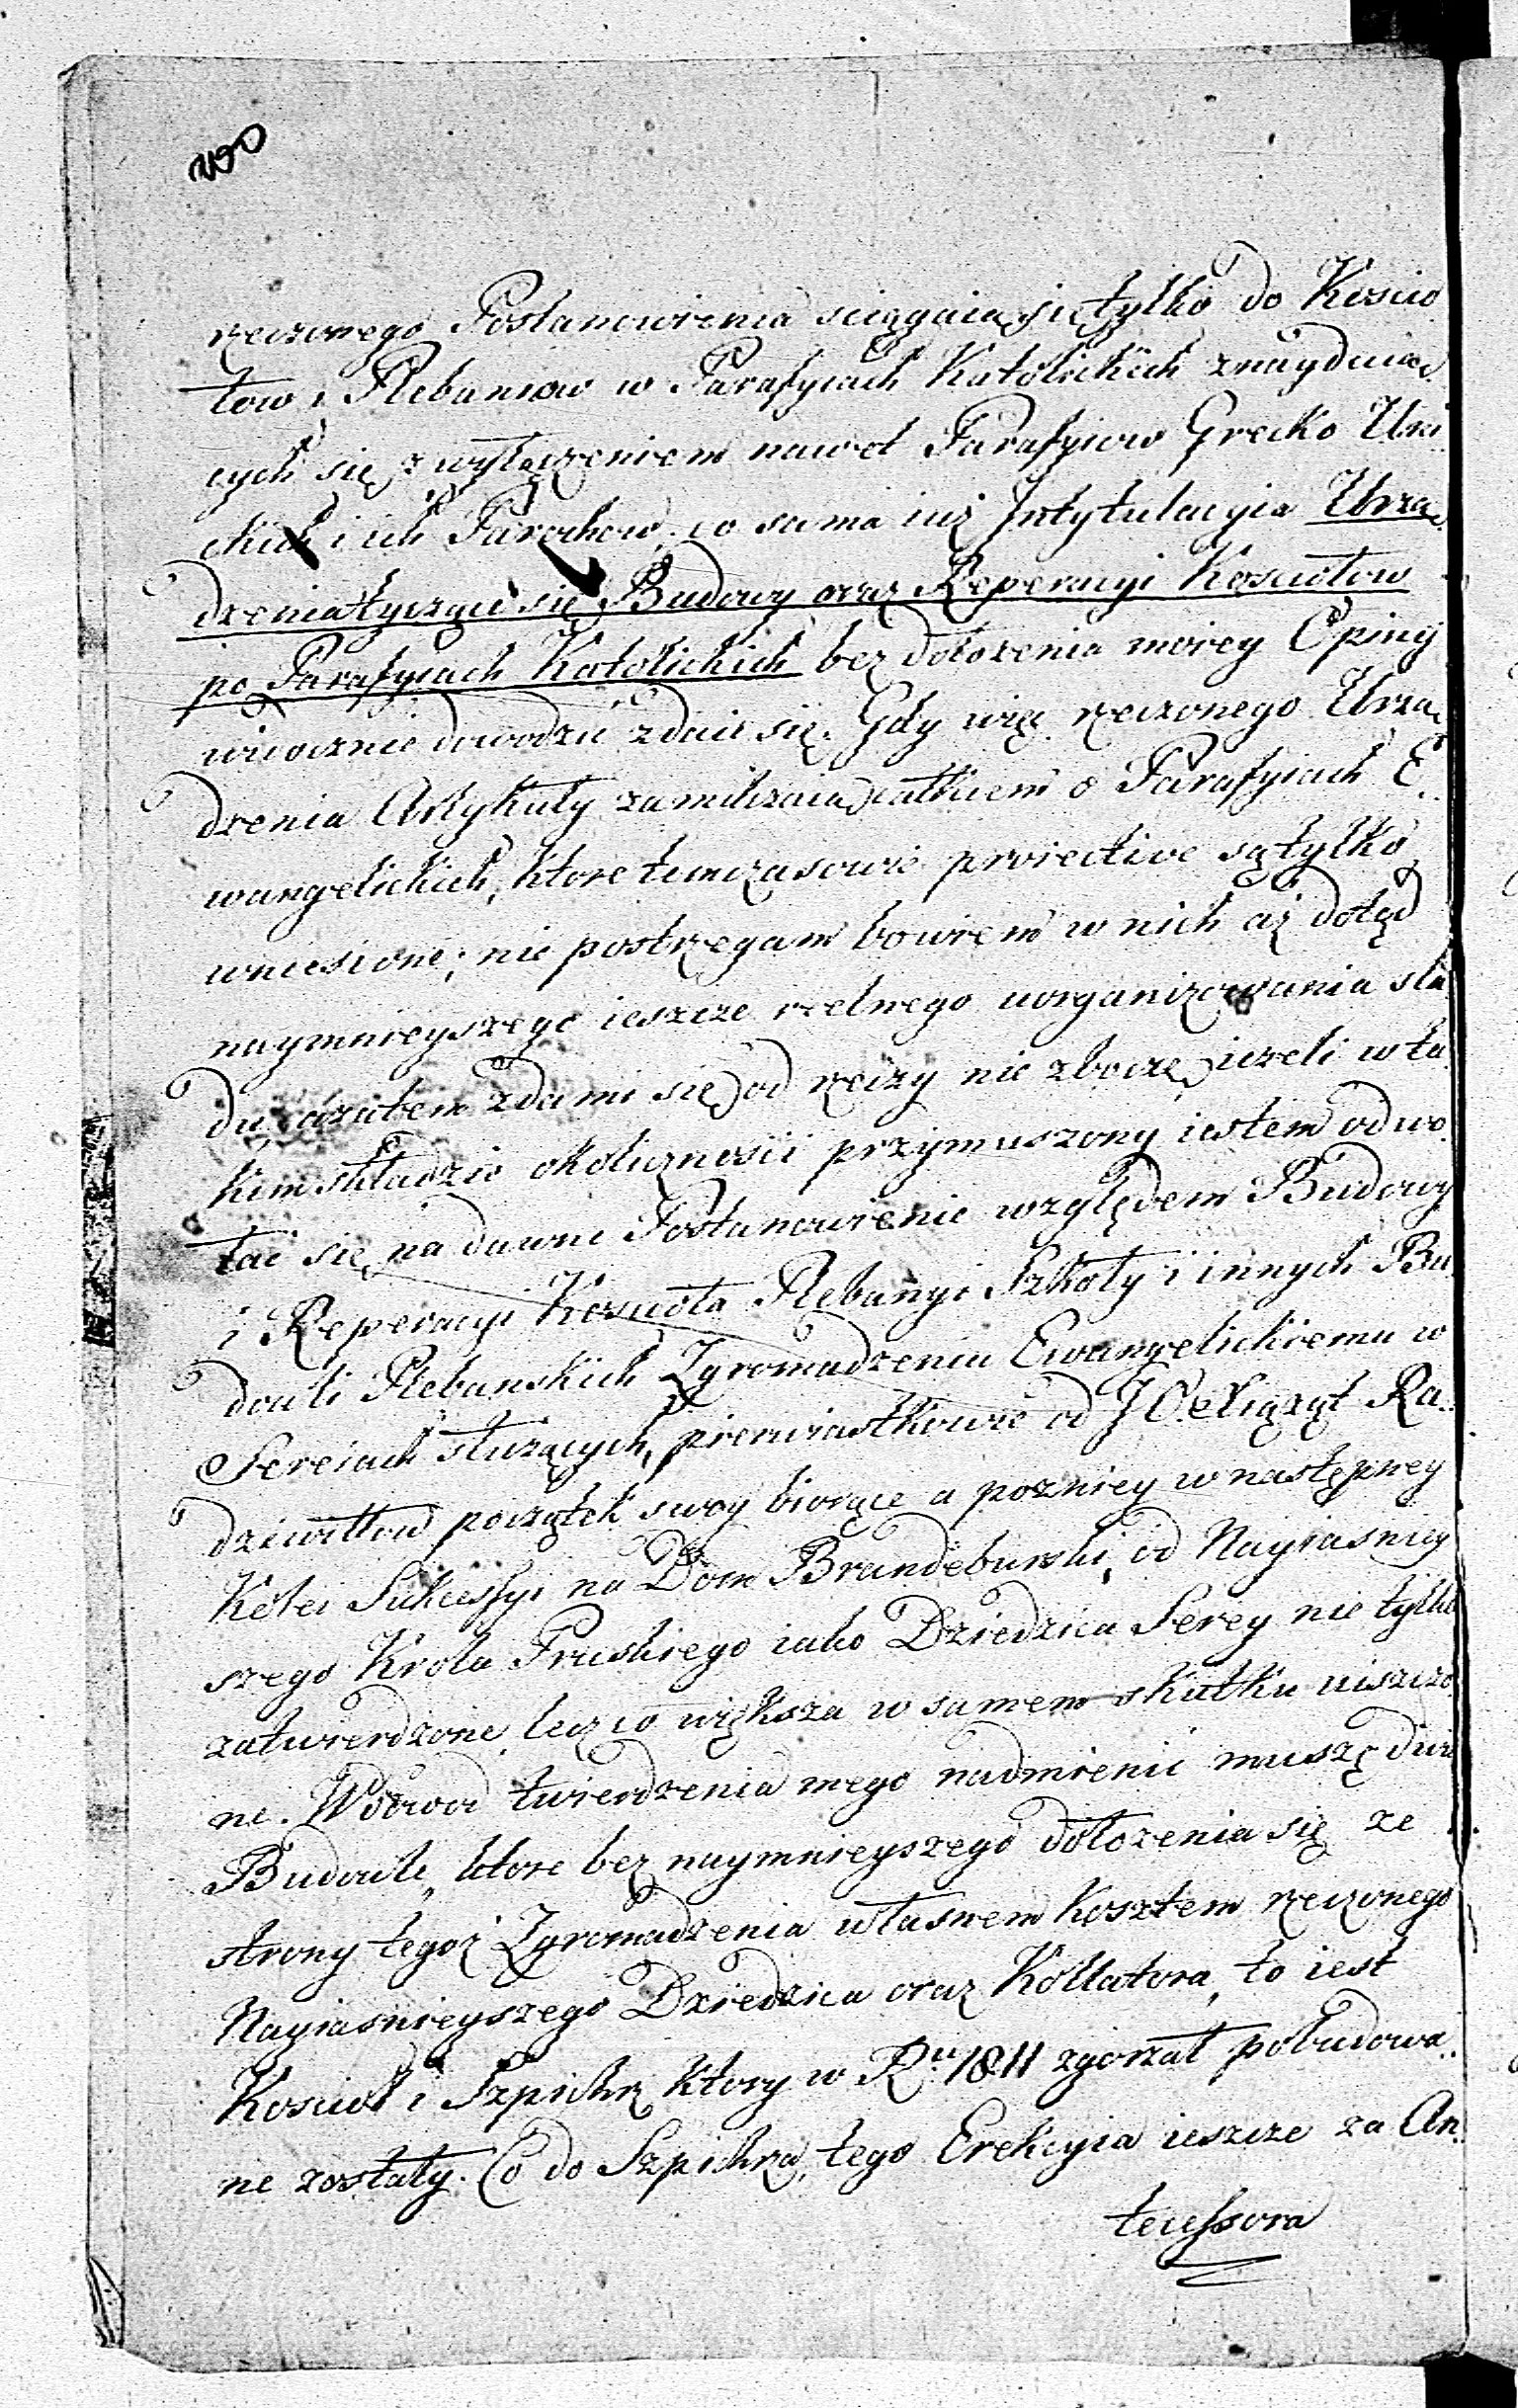 rzeczonego Postanowienia sciągaią się tylko do Koscio
łow i Plebaniow w Parafyiach Katolickich znayduią
cych się z wyłączeniem nawet Parafyiow Grecko Uni
ckich i ich Parochow, co sama iuż Intytulacyia Urzą
dzenia tyczące się Budowy oraz Reperacyi Kosciołow
po Parafyiach Katolickich bez dołożenia moiey Opiniy
widocznie dowodzić zdaie się. Gdy więc rzeczonego Urzą
dzenia Artykuły zamilczaią całkiem o Parafyiach E
wangelickich, ktore tymczasowie proiective są tylko
wniesione; nie postrzegam bowiem w nich aż dotąd
naymnieyszego ieszcze reelnego uorganizowania sla
du, azatem zda mi się, od rzeczy nie zboczę, ieżeli w ta
kim składzie okolicznosci przymuszony iestem odwo
łać się na dawne Postanowienie względem Budowy
i Reperacyi Koscioła Plebanyi Szkoły i innych Bu
dowli Plebanskich Zgromadzeniu Ewangelickiemu w
Sereiach służących, pierwiastkowie od J. O. Xiążąt Ra
dziwiłłow początek swoy biorące a pozniey w następney
Kolei Sukcessyi na Dom Brandeburski, od Nayiasniey
szego Krola Pruskiego iako Dziedzica Serey nie tylko
zatwierdzone, lecz co większa w samem skutku uiszczo
ne. W dowod twierdzenia mego nadmienić muszę dwie
Budowle, ktore bez naymnieyszego dołożenia się ze
strony tegoż Zgromadzenia własnem kosztem rzeczonego
Nayiasnieyszego Dziedzica oraz Kollatora, to iest
Kosciół i Szpichrz ktory w Rᵘ 1811 zgorzał pobudowa
ne zostały. Co do Szpichrza, tego Erekcyia ieszcze za An
tecessora